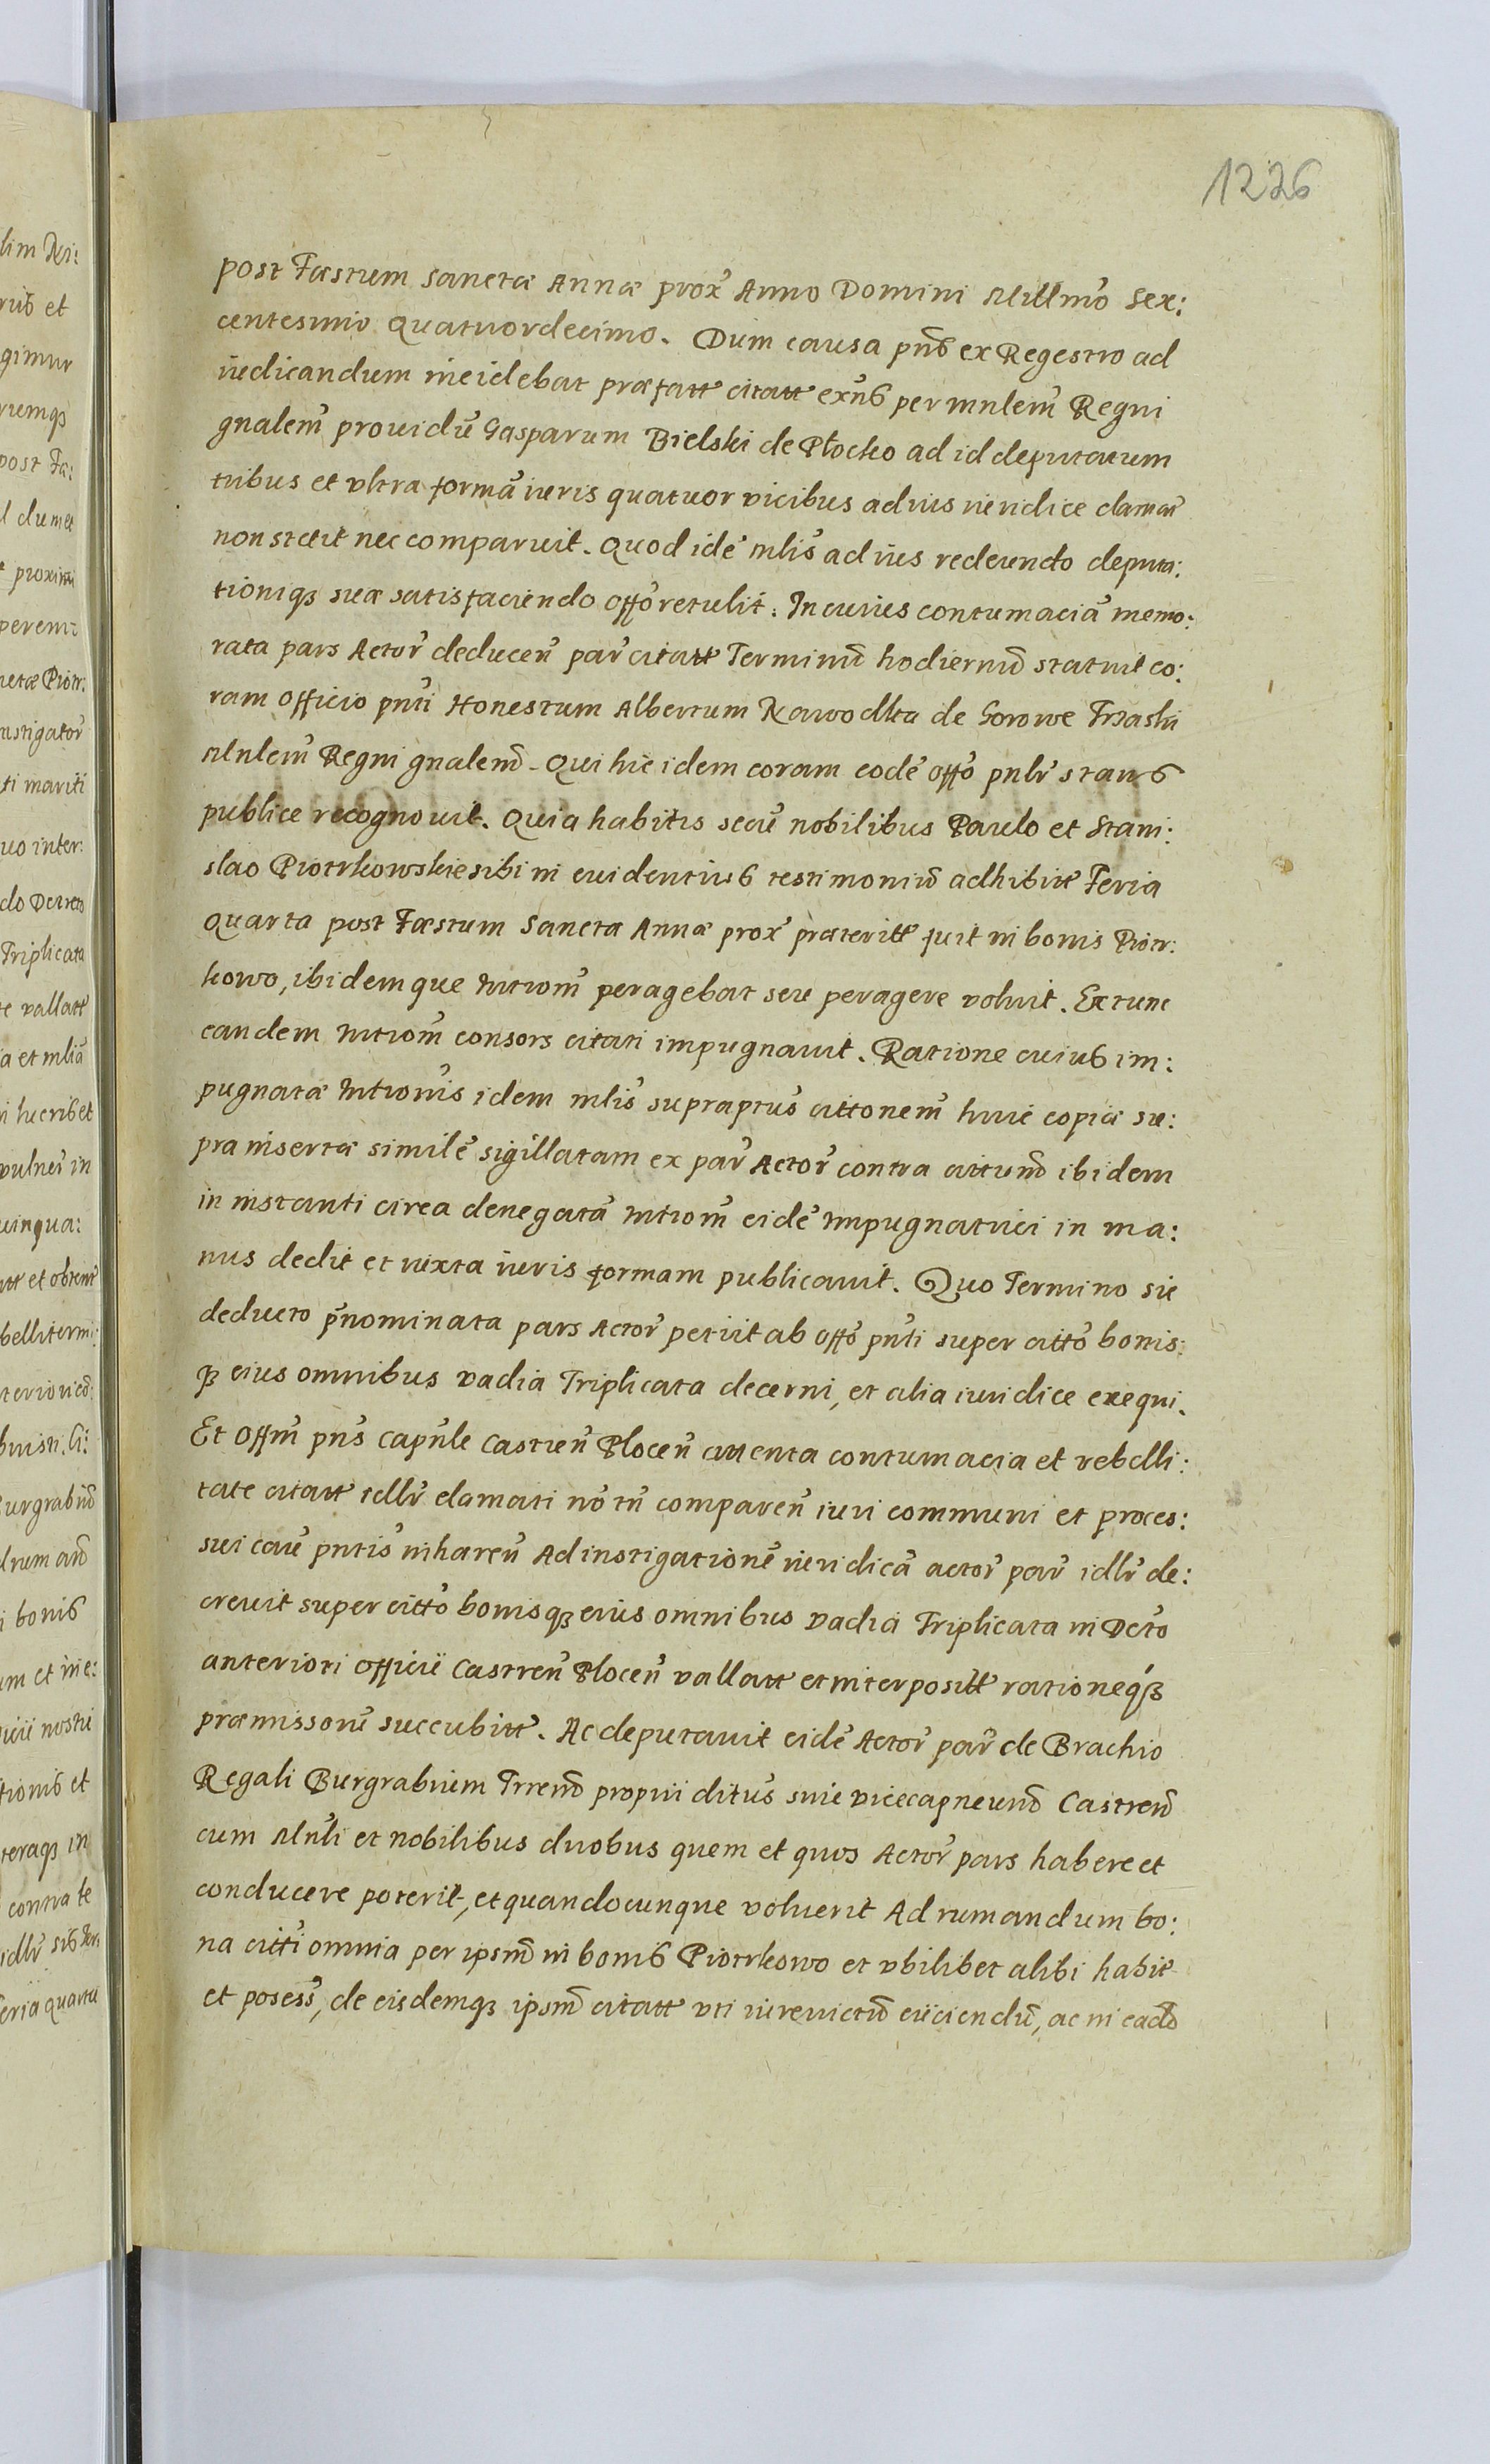 1226
post Fæstum Sanctæ Annæ prox̃ Anno Domini Millm̃o Sex:
centesimo Quatuordecimo. Dum causa pn̄s ex Regestro ad
iudicandum incidebat præfatt citatt exn̄s per mnlem̃ Regni
gnalem̃ prouidũ Gasparum Bielski de Płocko ad id deputatum
tribus et vltra formã iuris quatuor vicibus ad ius iuridice clamat̃
non stetit nec comparuit. Quod idẽ mlis̃ ad ius redeundo deputa:
tioniqȝ suæ satisfaciendo offõ retulit. In cuius contumaciã memo:
rata pars Actor̃ deducen̄ par̃ citatt Terminũ hodiernũ statuit co:
ram Officio pn̄ti Honestum Albertum Nawodka de Gorowe Trzaski
Mnlem̃ Regni gnalem̃. Qui hic idem coram eodẽ offõ pnlr̃ stans
publice recognouit. Quia habitis secũ nobilibus Paulo et Stani:
slao Piotrkowskie sibi in euidentius testimoniũ adhibitt Feria
Quarta post Fæstum Sanctæ Annæ prox̃ præteritt fuit in bonis Piotr:
kowo, ibidemque Introm̃ peragebat seu peragere voluit. Ex tunc
eandem Introm̃ consors citati impugnauit. Ratione cuius im:
pugnatæ Intronis̃ idem mlis̃ supraptus̃ cittonem̃ huic copiæ su:
pra insertæ similẽ sigillatam ex par̃ Actor̃ contra cittum̃ ibidem
in instanti circa denegatã Introm̃ eidẽ Impugnatrici in ma:
nus dedit et iuxta iuris formam publicauit. Quo Termino sic
deducto p̃nominata pars Actor̃ petiit ab offõ pn̄ti super cittõ bonis:
qȝ eius omnibus vadia Triplicata decerni, et alia iuridice exequi.
Et Offm̃ pn̄s Capn̄le Castren̄ Plocen̄ attenta contumacia et rebelli:
tate citatt idlr̃ clamati nõ tñ comparen̄ iuri communi et proces:
sui cau͂ pn̄tis inhæren̄ Ad instigationẽ iuridicã actor̃ par̃ idlr̃ de:
creuit super cittõ bonisqȝ eius omnibus vadia Triplicata in Dctõ
anteriori Officii Castren̄ Plocen̄ vallatt et interpositt rationeqȝ
præmissorũ succubitt. Ac deputauit eidẽ Actor̃ par̃ de Brachio
Regali Burgrabium Trrem̃ proprii ditus̃ siue vicecapneum̃ Castren̄
cum Mnl̃i et nobilibus duobus quem et quos Actor̃ pars habere et
conducere poterit, et quandocunque voluerit Ad rumandum bo:
na citti omnia per ipsm̃ in bonis Piotrkowo et vbilibet alibi habit
et posess̃, de eisdemqȝ ipsm̃ citatt vti iureuictũ eiiciendũ, ac in eadẽ